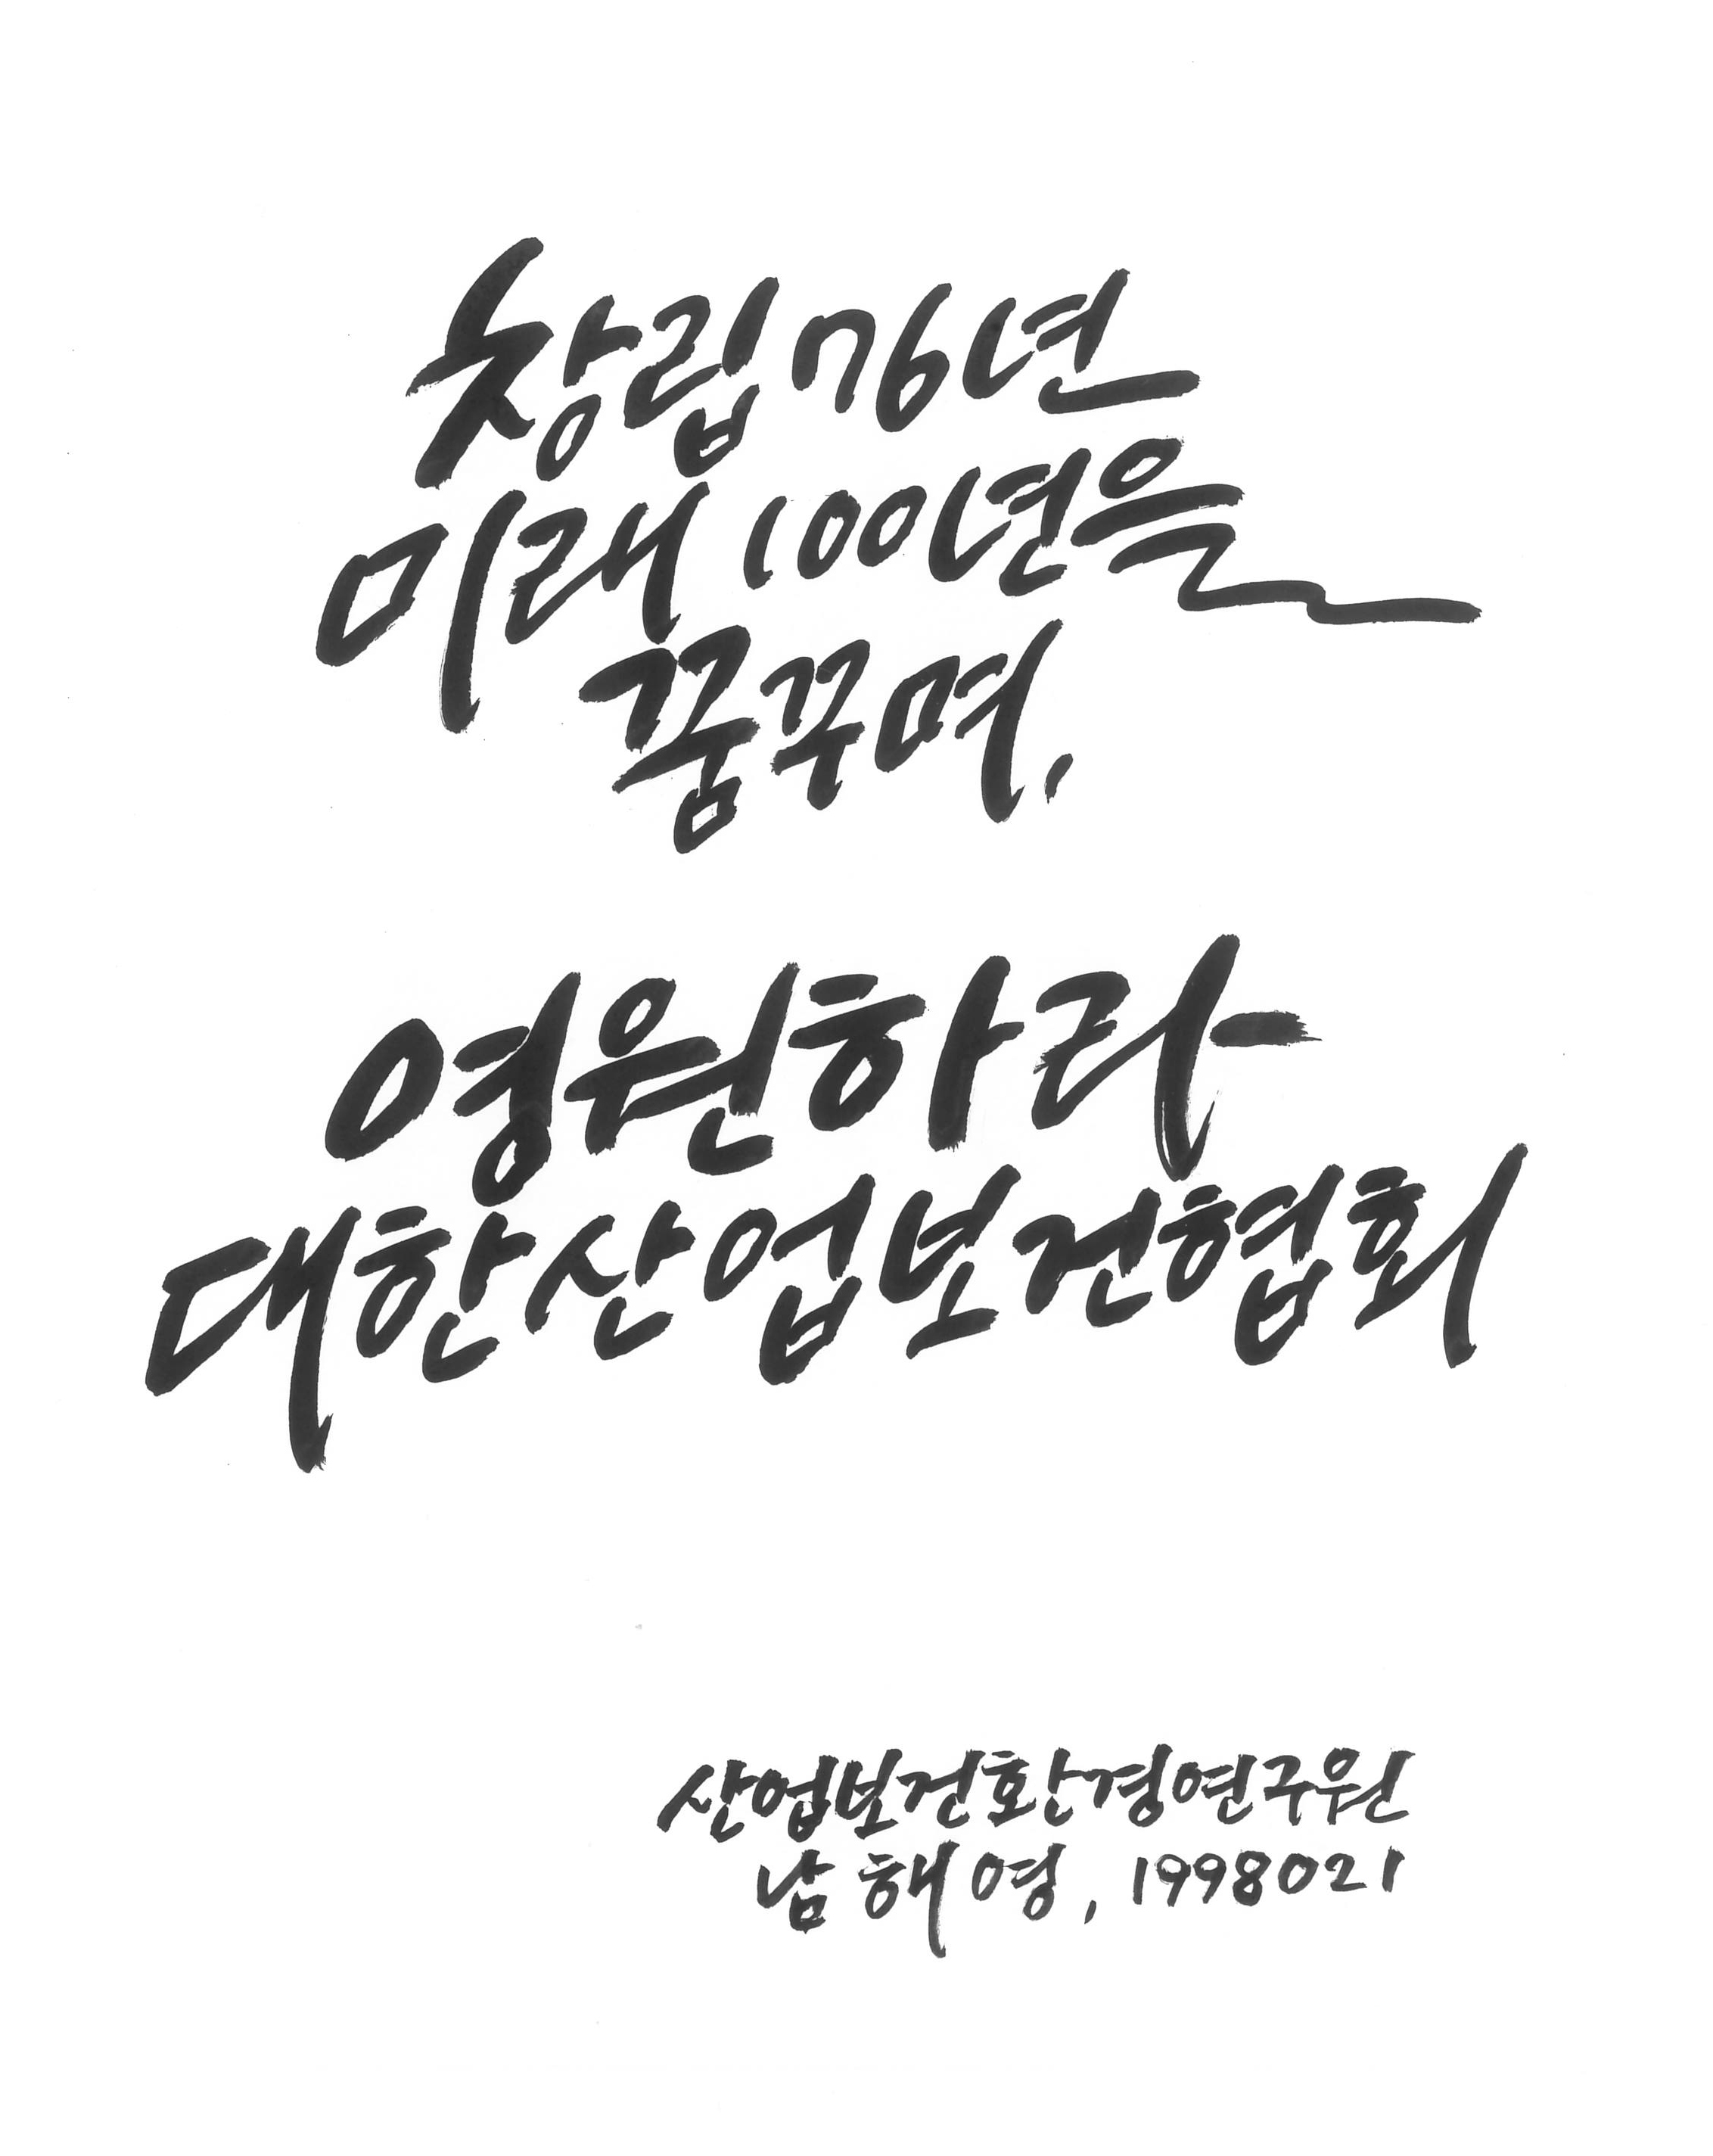 창립76년
미래100년을
꿈꾸며,
영원하라
대한산업보건협회
산업보건환경연구원
남해영, 1998021